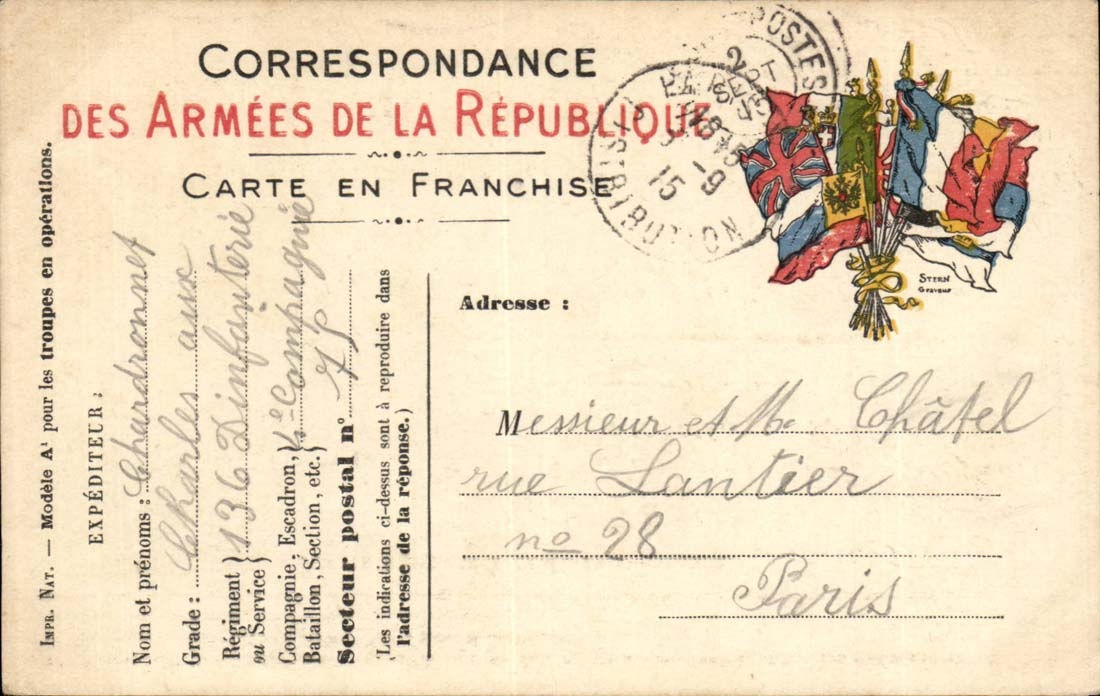 CORRESPONDANCE
DES ARMÉES DE LA RÉPUBLIQUE
CARTE EN FRANCHISE
POSTES
2
SEPT
15
PARIS
-9
15
DISTRIBUTION
STERN
Graveur
IMPR. NAT. — Modèle A¹ pour les troupes en opérations.
EXPÉDITEUR :
Nom et prénoms : Chardronnet
Charles
Grade : aux
Régiment ou Service } 136 Dinfanterie
Compagnie, Escadron, Bataillon, Section, etc. } Compagnie
Secteur postal n°
Les indications ci-dessus sont à reproduire dans
l'adresse de la réponse.)
Adresse :
Messieur et Me Châtel
rue Lantier
no 28
Paris